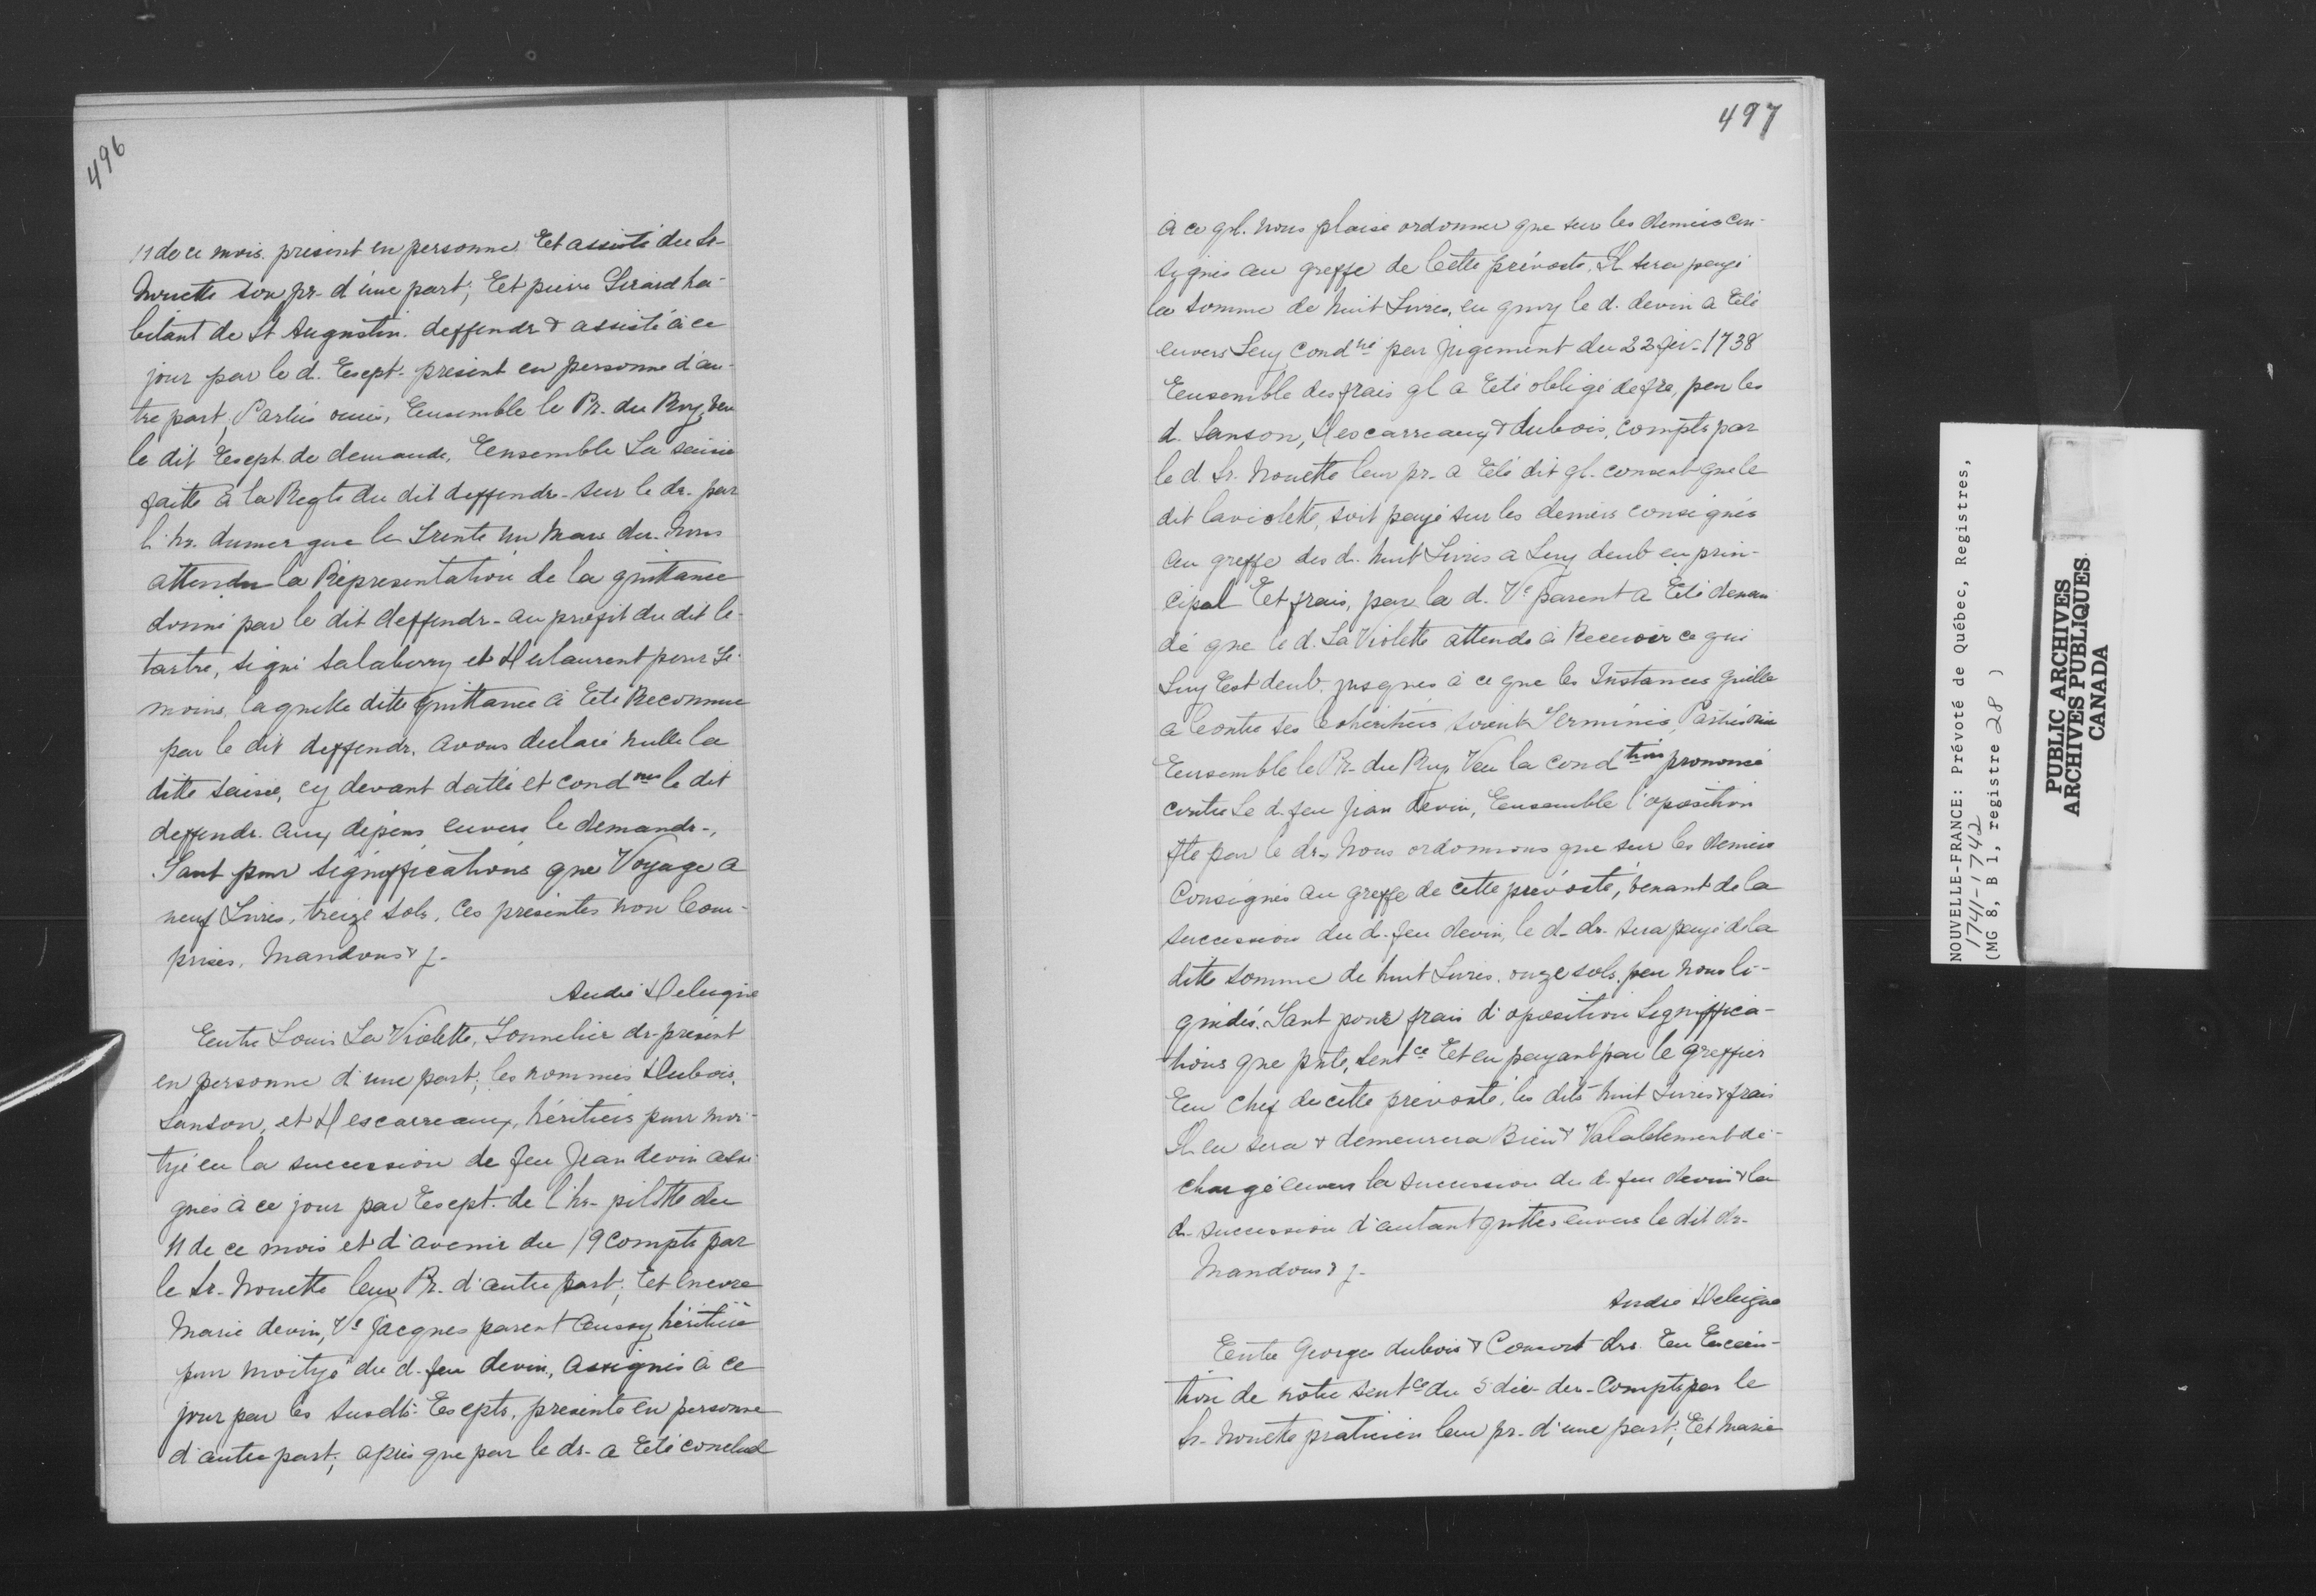 496
11 de ce mois. présent en personne Et assisté du Sr
Nouette son pr. d'une part; Et pierre Girard ha-
bitant de St Augustin. deffendr & assisté à ce
jour par le d. Eexpt. présent en personne d'au-
tre part, Parties ouies, Eensemble le Pr. du Roy, veu
le dit Eexpt. de demande, Eensemble La saisie
faitte à la Reqte du dit deffendr. sur le dr. par
l'hr. dumergue le Trente un Mars der. Nous
attendu la Réprésentation de la quittance
donné par le dit deffendr. au profit du dit le-
tartre, signé Salaberry et Delaurent pour té-
moins, laquelle ditte quittance a Eeté Reconnue
par le dit deffendr. avons déclaré nulle la
ditte saisie, cy devant datté et condnns le dit
deffendr. aux dépens envers le demandr.,
Tant pour significations que Voyage a
neuf Livres, treize sols, ces présentes non Com-
prises. Mandons & j.
André Deleigne
Eentre Louis La Violette, Tonnelier dr. présent
en personne d'une part; les nommés Dubois,
Sanson, et Descarreaux, héritiers pour moi-
tyé en la succession de feu Jean devin assi-
gnés à ce jour par Eexpt. de l'hr. pilotte du
11 de ce mois et d'avenir du 19 compts par
le Sr. Nouette leur Pr. d'autre part; Eet encore
Marie devin, Ve Jacques parent aussy héritière
pour moityé du d. feu devin, assignés à ce
jour par les susdts. Eexpts, présente en personne
d'autre part; après que par le dr. a Eeté conclud
497
à ce ql. nous plaise ordonner que sur les deniers con-
sygnés au greffe de Cette prévosté, Il sera payé
la somme de huit Livres, en quoy le d. devin a Eeté
envers Luy condné par jugement du 22 fév. 1738
Eensemble des frais ql a Eeté obligé de fre, par les
d. Sanson, Descarreaux & dubois, compts par
le d. Sr. Nouette leur pr. a Eeté dit ql. consent que le
dit laviolette, soit payé sur les deniers consignés
au greffe des d. huit Livres a Luy deub en prin-
cipal Eet frais, par la d. Ve parent a Eeté deman-
dé que le d. La Violette attende à Recevoir ce qui
Luy Eest deub. jusques à ce que les Instances qu'elle
a Contre ses Cohéritiers soient Terminés, Parties ouies
Eensemble le Pr. du Roy Veu la condtion prononcé
contre Le d. feu Jean devin, Eensemble l'oposition
fte par le dr. Nous ordonnons que sur les deniers
Consignés au greffe de cette prévosté, venant de la
succession du d. feu devin, le d. dr. sera payé de la
ditte somme de huit Livres. onze sols, par nous li-
quidés. Tant pour frais d'oposition Significa-
tions que pnte, sentce Eet en payant par le greffier
Een chef de cette prévosté, les dits huit Livres & frais
Il en sera & demeurera Bien & Valablement dé-
chargé envers la succession du d. feu devin & la
d. succession d'autant quittes envers le dit dr.
Mandons & j.
André Deleigne
Eentre Georges dubois & Consort drs. Een Exécu-
tion de nôtre sentce du 5 déc. der. compts par le
Sr. Nouette praticien leur pr. d'une part; Eet Marie
NOUVELLE-FRANCE: Prévoté de Québec, Registres,
1741-1742
(MG 8, B 1, registre 28 )
PUBLIC ARCHIVES
ARCHIVES PUBLIQUES
CANADA